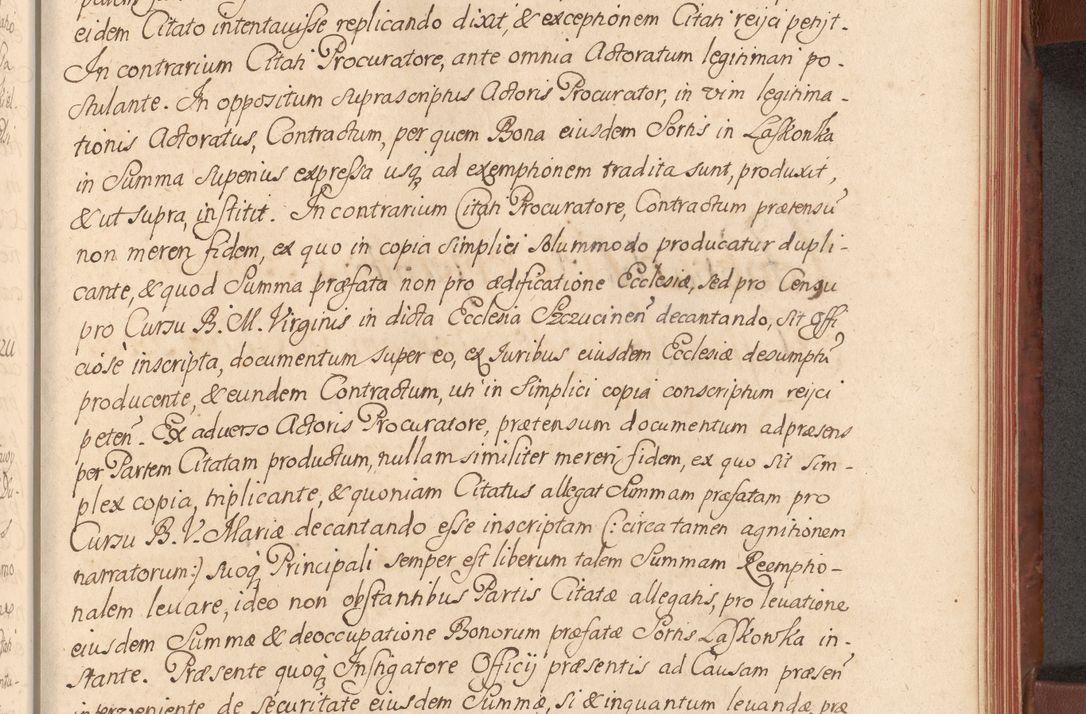 eidem Citato intentavisse replicando dixit, & exceptionem Citati reijci petijt.
In contrarium Citati Procuratore, ante omnia Actoratum legitimari po-
stulante. In oppositum suprascriptus Actoris Procurator, in vim legitima-
tionis Actoratus, Contractum, per quem Bona eiusdem Sortis in Laskowka
in Summa superius expressa usq ad exemptionem tradita sunt, produxit,
& ut supra, institit. In contrarium Citati Procuratore, Contractum prætensũ
non mereri fidem, ex quo in copia simplici solummodo producatur dupli-
cante, & quod Summa præfata non pro ædificatione Ecclesiæ, sed pro Censu
pro Cursu B. M. Virginis in dicta Ecclesia Szczucinen decantando, sit offi
ciosè inscripta, documentum super eo, ex Iuribus eiusdem Ecclesiæ desumptũ
producente, & eundem Contractum, uti in simplici copia conscriptum reijci
peten. Ex adverso Actoris Procuratore, prætensum documentum ad præsens
per Partem Citatam productum, nullam similiter mereri fidem, ex quo sit sim-
plex copia, triplicante, & quoniam Citatus allegat Summam præfatam pro
Cursu B. V. Mariæ decantando esse inscriptam (: circa tamen agnitionem
narratorum :) suoq Principali semper est liberum talem Summam Reemptio-
nalem levare, ideo non obstantibus Partis Citatæ allegatis, pro levatione
eiusdem Summæ & deoccupatione Bonorum præfatæ Sortis Laskowka in-
stante. Præsente quoq Instigatore Officij præsentis ad Causam præsen
interveniente de securitate eiusdem Summæ, si & inquantum levandæ præ